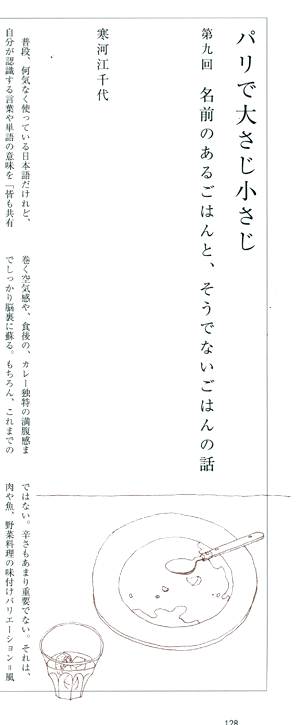 パリで大さじ小さじ
第九回　名前のあるごはんと、そうでないごはんの話
寒河江千代
普段、何気なく使っている日本語だけれど、
自分が認識する言葉や単語の意味を「皆も共有
巻く空気感や、食後の、カレー独特の満腹感ま
でしっかり脳裏に蘇る。もちろん、これまでの
ではない。辛さもあまり重要でない。それは、
肉や魚、野菜料理の味付けバリエーション＝風
128